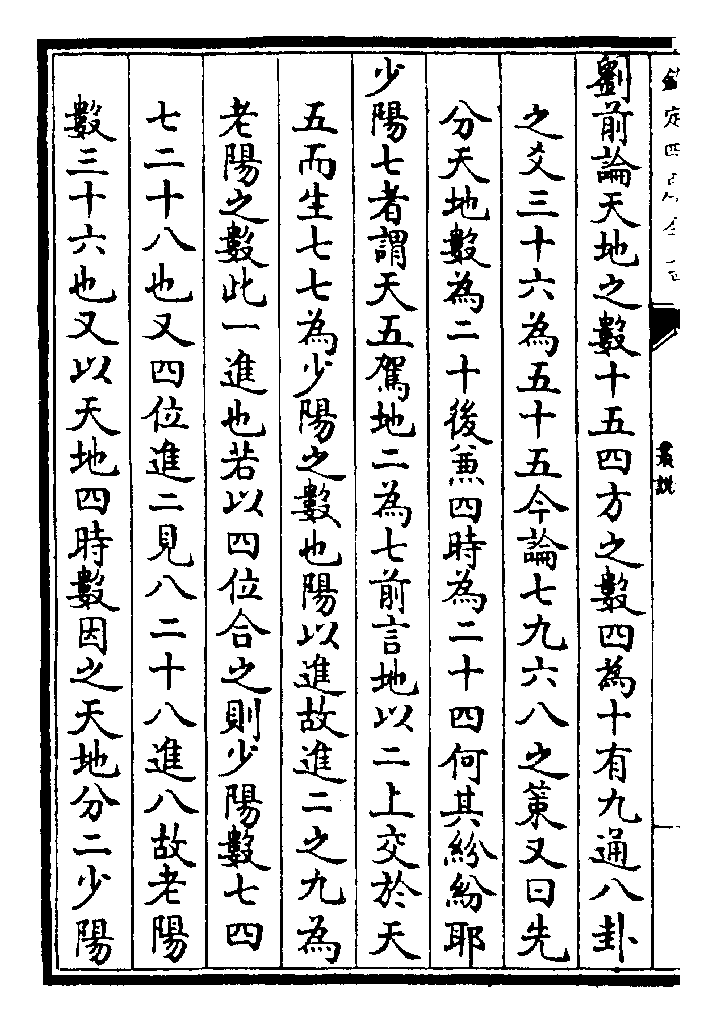 劉前論天地之數十五四方之數四為十有九通八卦
之爻三十六為五十五今論七九六八之䇿又曰先
分天地數為二十後兼四時為二十四何其紛紛耶
少陽七者謂天五駕地二為七前言地以二上交於天
五而生七七為少陽之數也陽以進故進二之九為
老陽之數此一進也若以四位合之則少陽數七四
七二十八也又四位進二見八二十八進八故老陽
數三十六也又以天地四時數因之天地分二少陽
欽定四庫全書
叢說